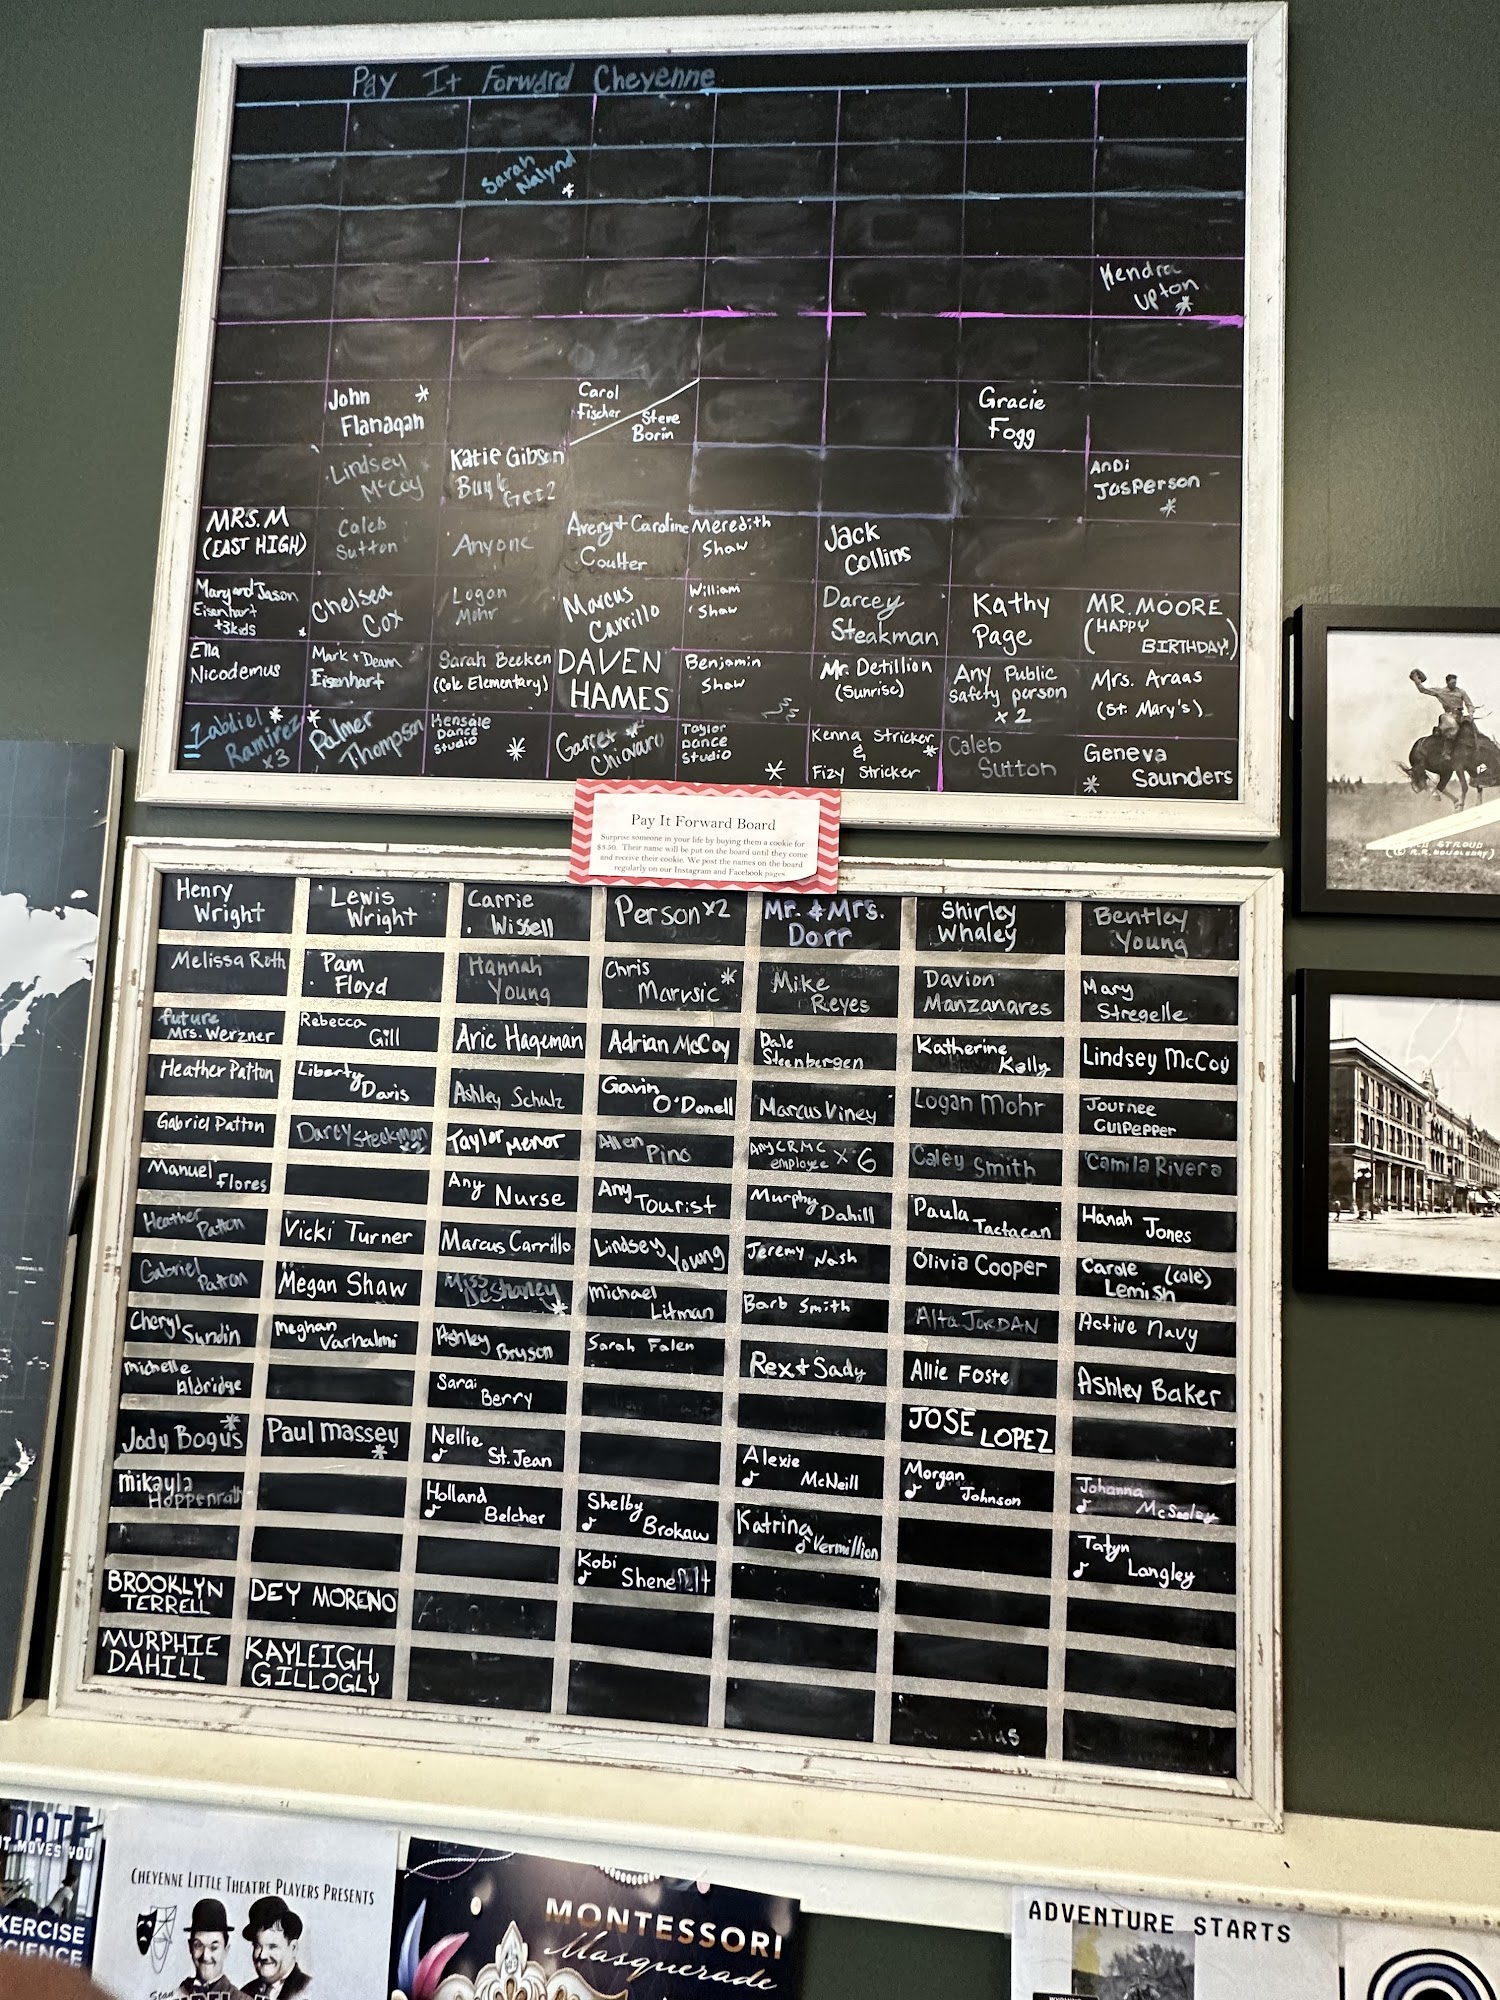 Pay It Forward Cheyenne
Sarah
Nalynd
*
Kendra
Upton
*
John *
Flanagan
Carol
Fischer
Steve
Borin
Gracie
Fogg
Lindsey
McCoy
Katie Gibson
Buy 1
Get 2
Andi
Jasperson
*
MRS. M
(EAST HIGH)
Caleb
Sutton
Anyone
Avery + Caroline
Coulter
Meredith
Shaw
Jack
Collins
Mary and Jason
Eisenhart
+3kids
Chelsea
Cox
Logan
Mohr
Marcus
Carrillo
William
Shaw
Darcey
Steakman
Kathy
Page
MR. MOORE
(HAPPY
BIRTHDAY!)
Ella
Nicodemus
Mark + Deann
Eisenhart
Sarah Becken
(Cole Elementary)
DAVEN
HAMES
Benjamin
Shaw
Mr. Detillion
(Sunrise)
Any Public
Safety person
x 2
Mrs. Araas
(St. Mary's)
Zabdiel *
Ramirez
x3
*
Palmer
Thompson
Hensale
Dance
Studio
*
Garret *
Chiavaro
Taylor
Dance
Studio
*
Kenna Stricker
& *
Fizy Stricker
Caleb
Sutton
Geneva
* Saunders
Pay It Forward Board
Surprise someone in your life by buying them a cookie for
$3.50. Their name will be put on the board until they come
and receive their cookie. We post the names on the board
regularly on our Instagram and Facebook pages.
Henry
Wright
Lewis
Wright
Carrie
Wissell
Person x2
Mr. & Mrs.
Dorr
Shirley
Whaley
Bentley
Young
Melissa Roth
Pam
Floyd
Hannah
Young
Chris *
Marusic
Mike
Reyes
Davion
Manzanares
Mary
Stregelle
future
Mrs. Werzner
Rebecca
Gill
Aric Hageman
Adrian McCoy
Dale
Steenbergen
Katherine
Kelly
Lindsey McCoy
Heather Patton
Liberty
Davis
Ashley Schulz
Gavin
O'Donell
Marcus Viney
Logan Mohr
Journee
Culpepper
Gabriel Patton
Darcy Steekman
x2
Taylor Menor
Allen
Pino
Any CRMC
employee x 6
Caley Smith
Camila Rivera
Manuel
Flores
Any Nurse
Any
Tourist
Murphy
Dahill
Paula
Tactacan
Hanah Jones
Heather
Patton
Vicki Turner
Marcus Carrillo
Lindsey
Young
Jeremy Nash
Olivia Cooper
Carole (Cole)
Lemish
Gabriel
Patton
Megan Shaw
Miss
DeShaney
*
Michael
Litman
Barb Smith
Alta JorDAN
Active Navy
Cheryl
Sundin
Meghan
Varhalmi
Ashley
Bryson
Sarah Falen
Rex + Sady
Allie Foste
Ashley Baker
Michelle
Aldridge
Sarai
Berry
JOSE
LOPEZ
Jody Bogus
*
Paul Massey
*
Nellie
♪ St. Jean
Alexie
♪ McNeill
Morgan
♪ Johnson
Johanna
♪ McSeeley
Mikayla
Hoppenrath
Holland
♪ Belcher
Shelby
♪ Brokaw
Katrina
♪ Vermillion
Tatyn
♪ Langley
Kobi
♪
BROOKLYN
TERRELL
DEY MORENO
MURPHIE
DAHILL
KAYLEIGH
GILLOGLY
STROUD
DATE
IT MOVES YOU
EXERCISE
SCIENCE
CHEYENNE LITTLE THEATRE PLAYERS PRESENTS
Stan
MONTESSORI
Masquerade
ADVENTURE STARTS